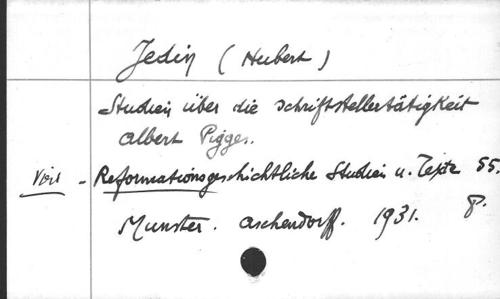 Jedin (Hubert)
Studien über die Schriftstellertätigkeit
Albert Pigges.
Voir - Reformationsgeschichtliche Studien u. Texte 55.
Munster. Aschendorff. 1931. 8.